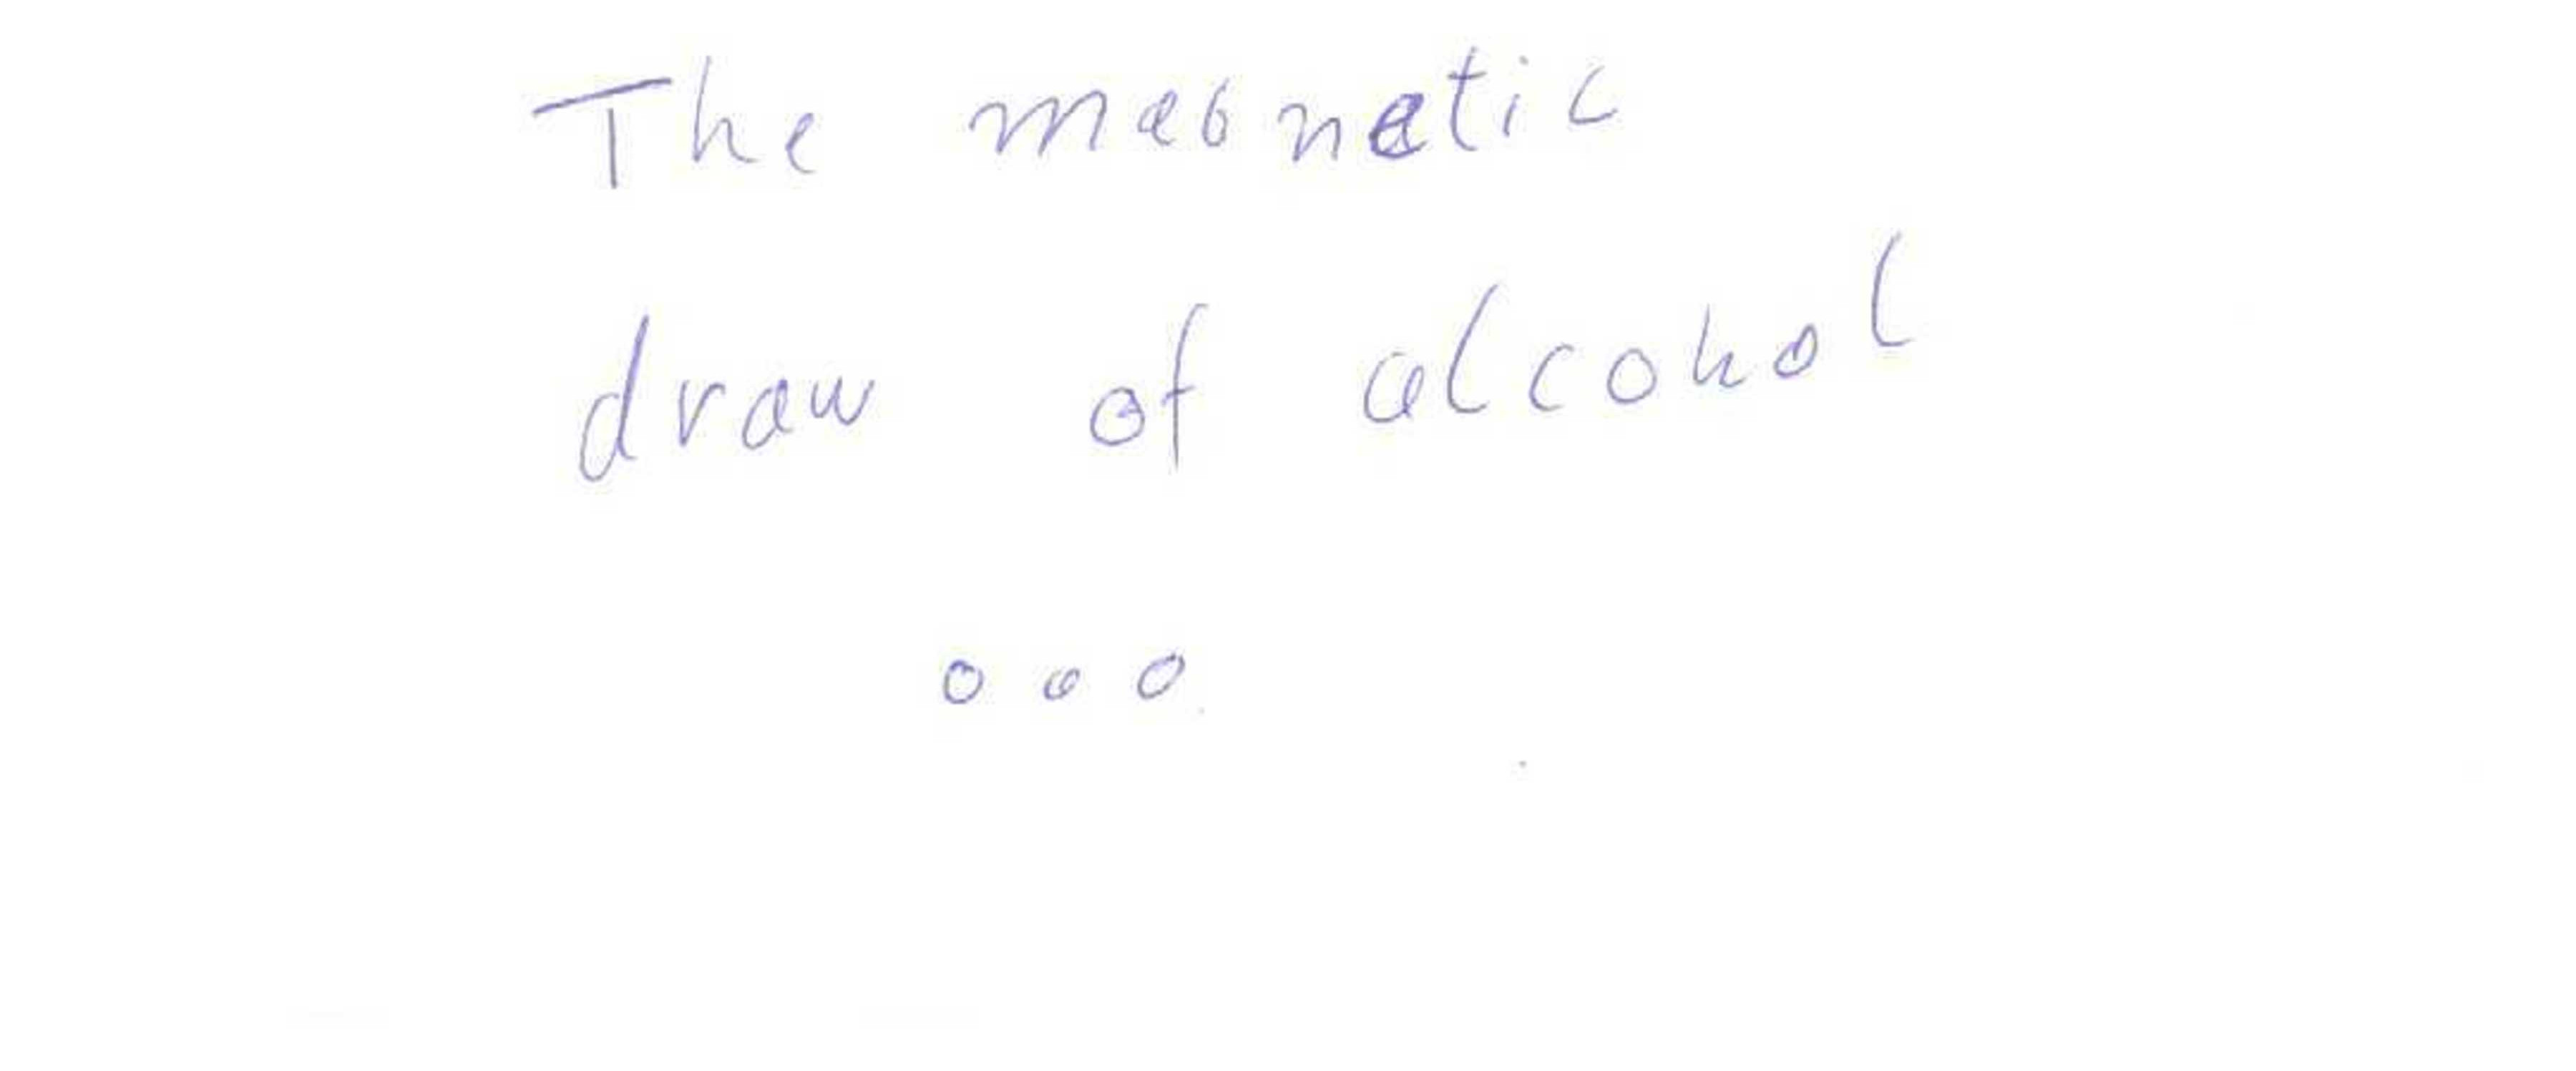 The magnetic
draw of alcohol
...